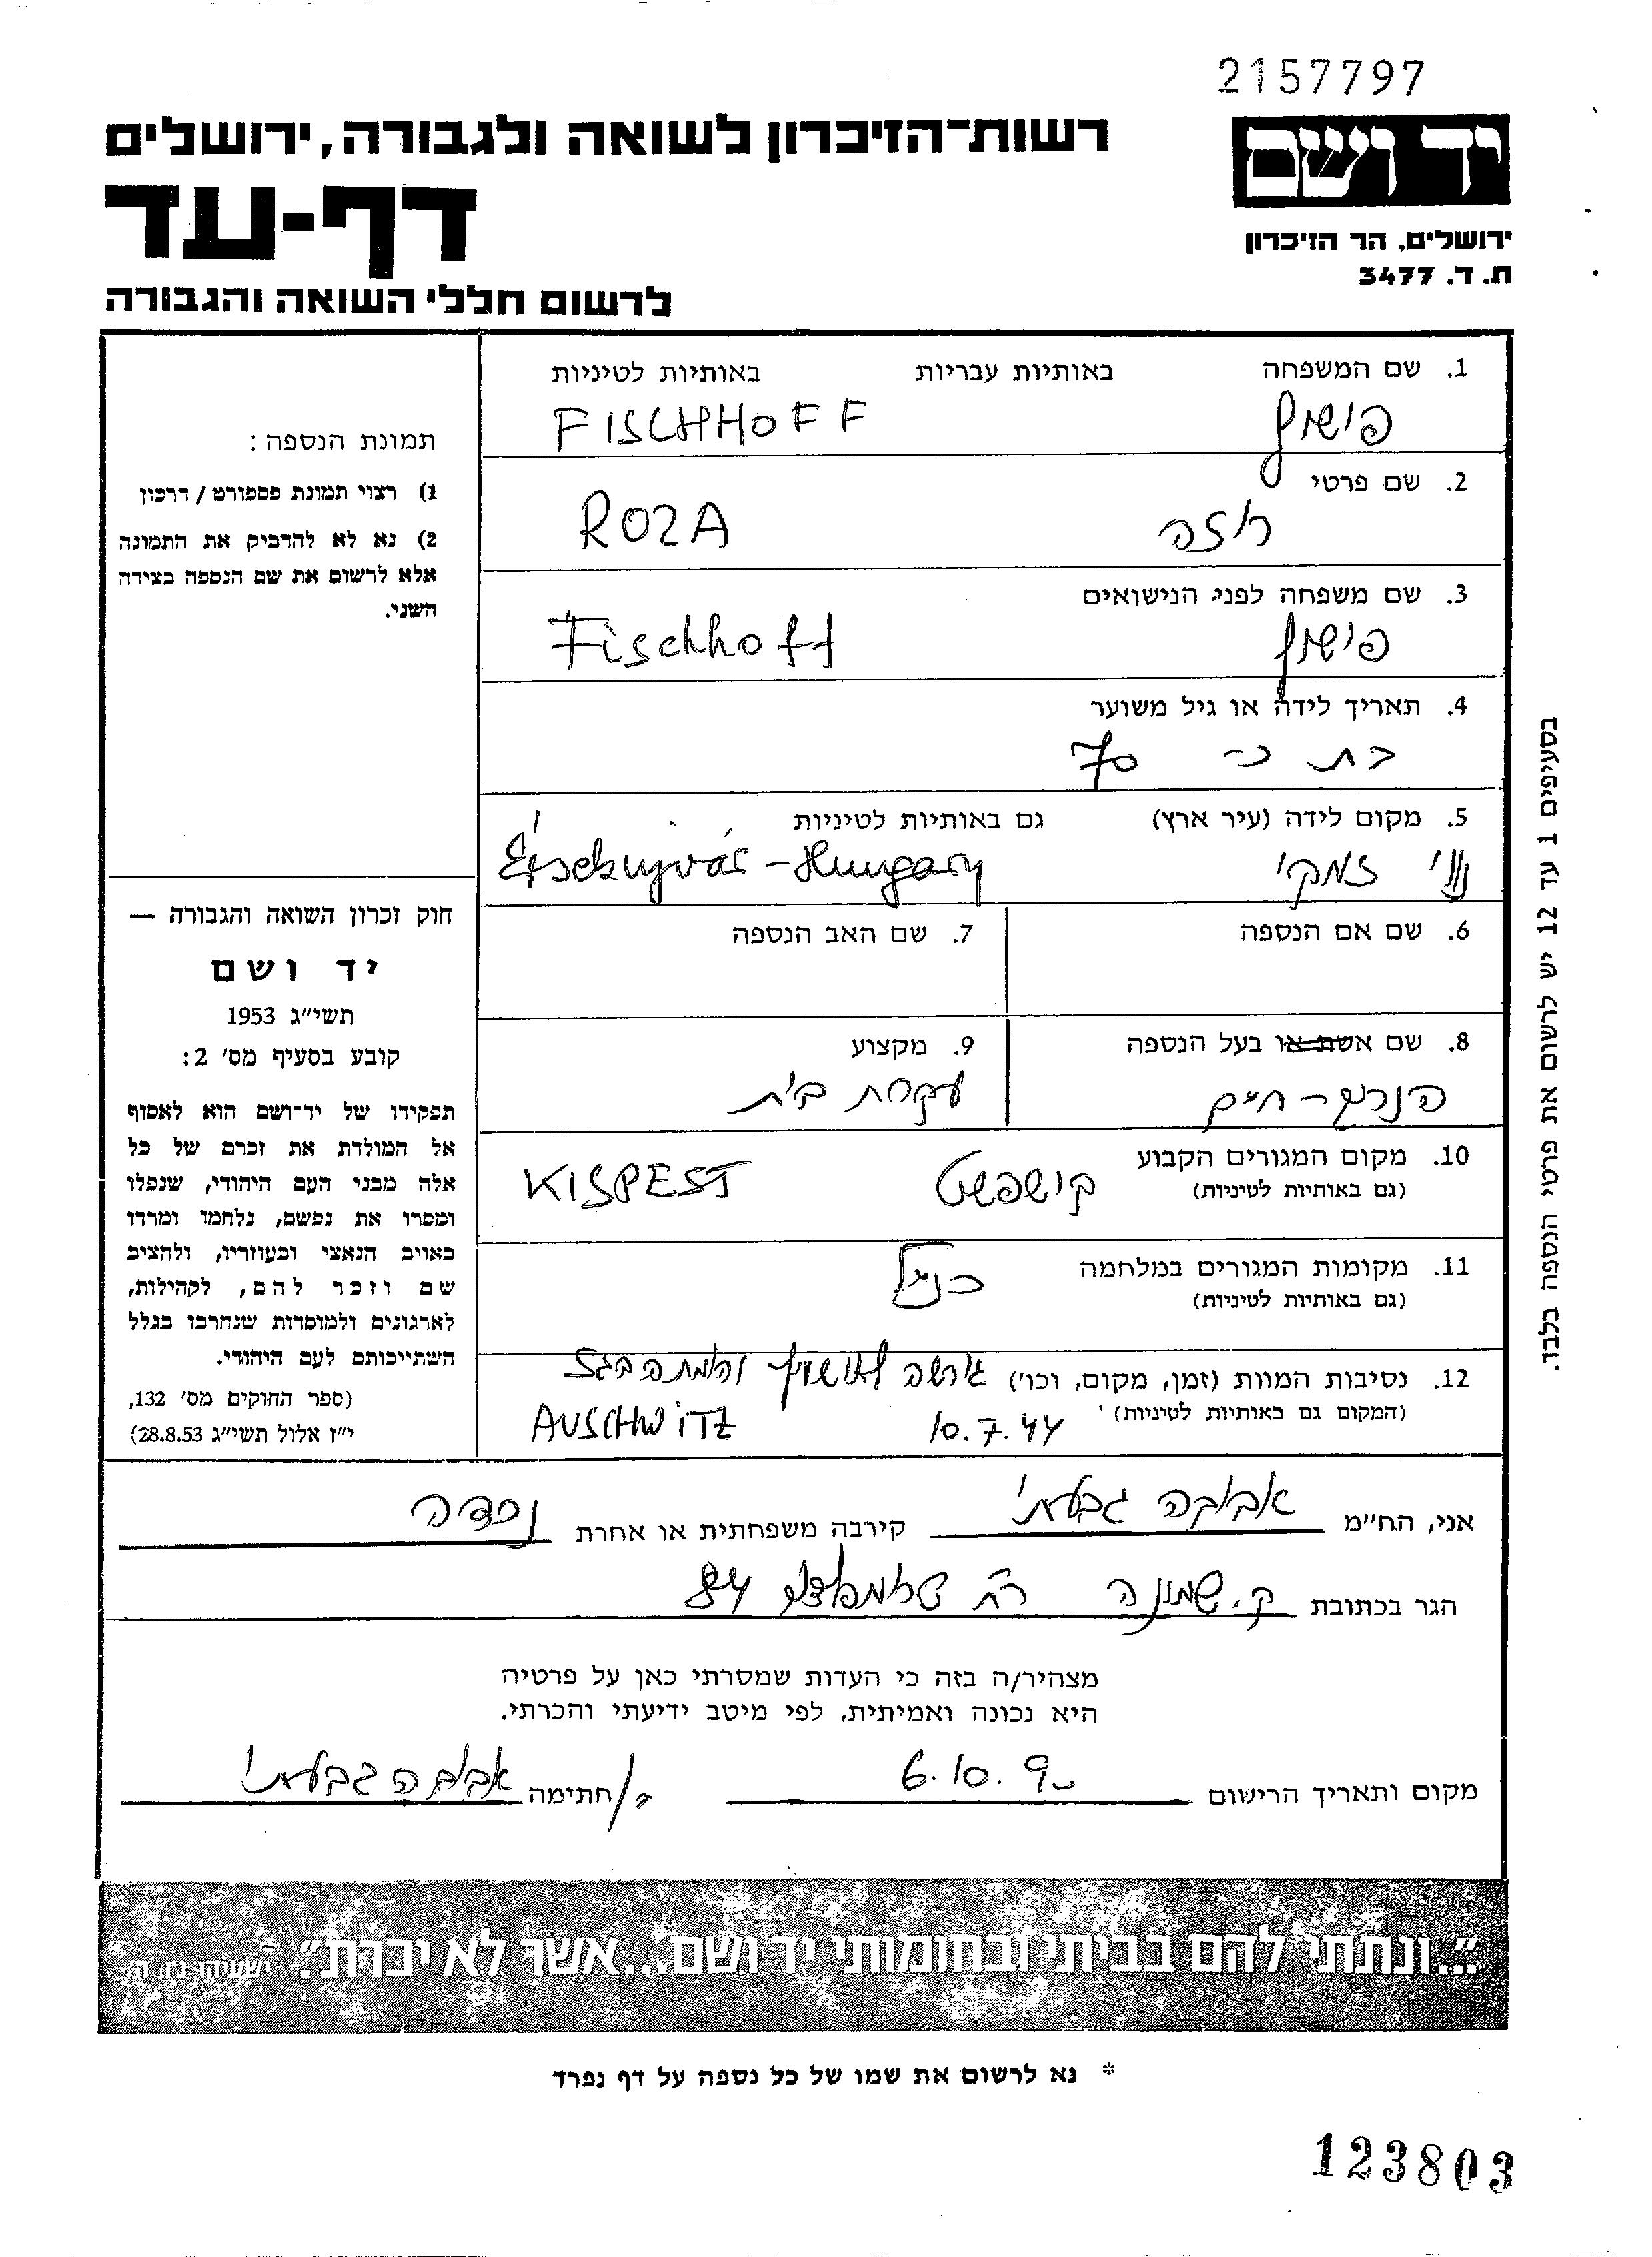 2157797
רשות־הזיכרון לשואה ולגבורה, ירושלים
יד ושם
דף-עד
ירושלים, הר הזיכרון
ת. ד. 3477
לרשום חללי השואה והגבורה
1. שם המשפחה באותיות עבריות באותיות לטיניות
פישוף FISCHHOFF
2. שם פרטי
רוזה ROZA
3. שם משפחה לפני הנישואים
פישוף Fischhoff
4. תאריך לידה או גיל משוער
בת כ- 70
5. מקום לידה (עיר ארץ) גם באותיות לטיניות
זמקי Érsekujvár - Hungary
6. שם אם הנספה 7. שם האב הנספה
8. שם אשת או בעל הנספה 9. מקצוע
הנריך - חיים עקרת בית
10. מקום המגורים הקבוע
(גם באותיות לטיניות)
קישפשט KISPEST
11. מקומות המגורים במלחמה
(גם באותיות לטיניות)
כנ"ל
12. נסיבות המוות (זמן, מקום, וכו') גורשה לאושויץ והומתה בגז
(המקום גם באותיות לטיניות) 10.7.44 AUSCHWITZ
תמונת הנספה:
1) רצוי תמונת פספורט/דרכון
2) נא לא להדביק את התמונה
אלא לרשום את שם הנספה בצידה
השני.
חוק זכרון השואה והגבורה —
יד ושם
תשי״ג 1953
קובע בסעיף מס' 2:
תפקידו של יד־ושם הוא לאסוף
אל המולדת את זכרם של כל
אלה מבני העם היהודי, שנפלו
ומסרו את נפשם, נלחמו ומרדו
באויב הנאצי ובעוזריו, ולהציב
שם וזכר להם, לקהילות,
לארגונים ולמוסדות שנחרבו בגלל
השתייכותם לעם היהודי.
(ספר החוקים מס' 132,
י״ז אלול תשי״ג 28.8.53)
בסעיפים 1 עד 12 יש לרשום את פרטי הנספה בלבד.
אני, הח״מ אביבה גבעתי קירבה משפחתית או אחרת נכדה
הגר בכתובת ק. שמונה רח' 84
מצהיר/ה בזה כי העדות שמסרתי כאן על פרטיה
היא נכונה ואמיתית, לפי מיטב ידיעתי והכרתי.
מקום ותאריך הרישום 6.10.90 חתימה אביבה גבעתי
״...ונתתי להם בביתי ובחומותי יד ושם...אשר לא יכרת״. ישעיהו נ״ו, ה'
* נא לרשום את שמו של כל נספה על דף נפרד
123803